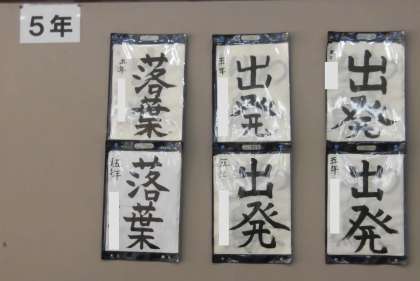 5年
出発
五年
出発
五年
出発
五年
出発
五年
落葉
五年
落葉
伍年